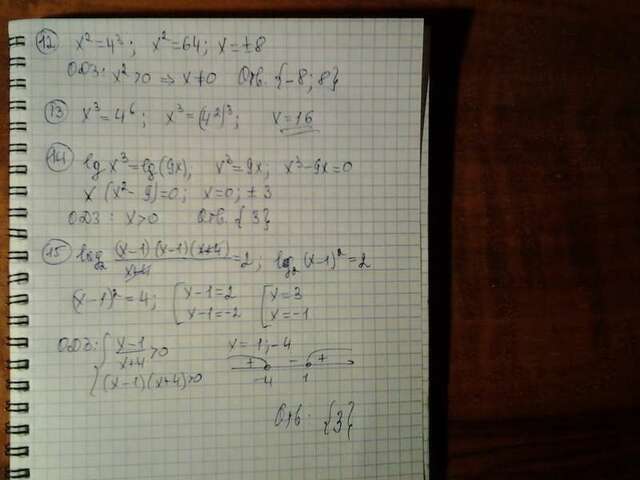 12 x²=4³; x²=64; x=±8
ОДЗ: x²>0 ⇒ x≠0 Отв. {-8; 8}
13 x³=4⁶; x³=(4²)³; x=16
14 lg x³=lg(9x), x³=9x; x³-9x=0
x(x²-9)=0; x=0; ±3
ОДЗ: x>0 Отв. {3}
15 log₂ (x-1)(x-1)(x+4)/x+4=2; log₂(x-1)²=2
(x-1)²=4; [x-1=2 [x=3
x-1=-2 x=-1
ОДЗ: { x-1/x+4>0 x=1; -4
+ - +
{(x-1)(x+4)>0 -4 1
Отв. {3}